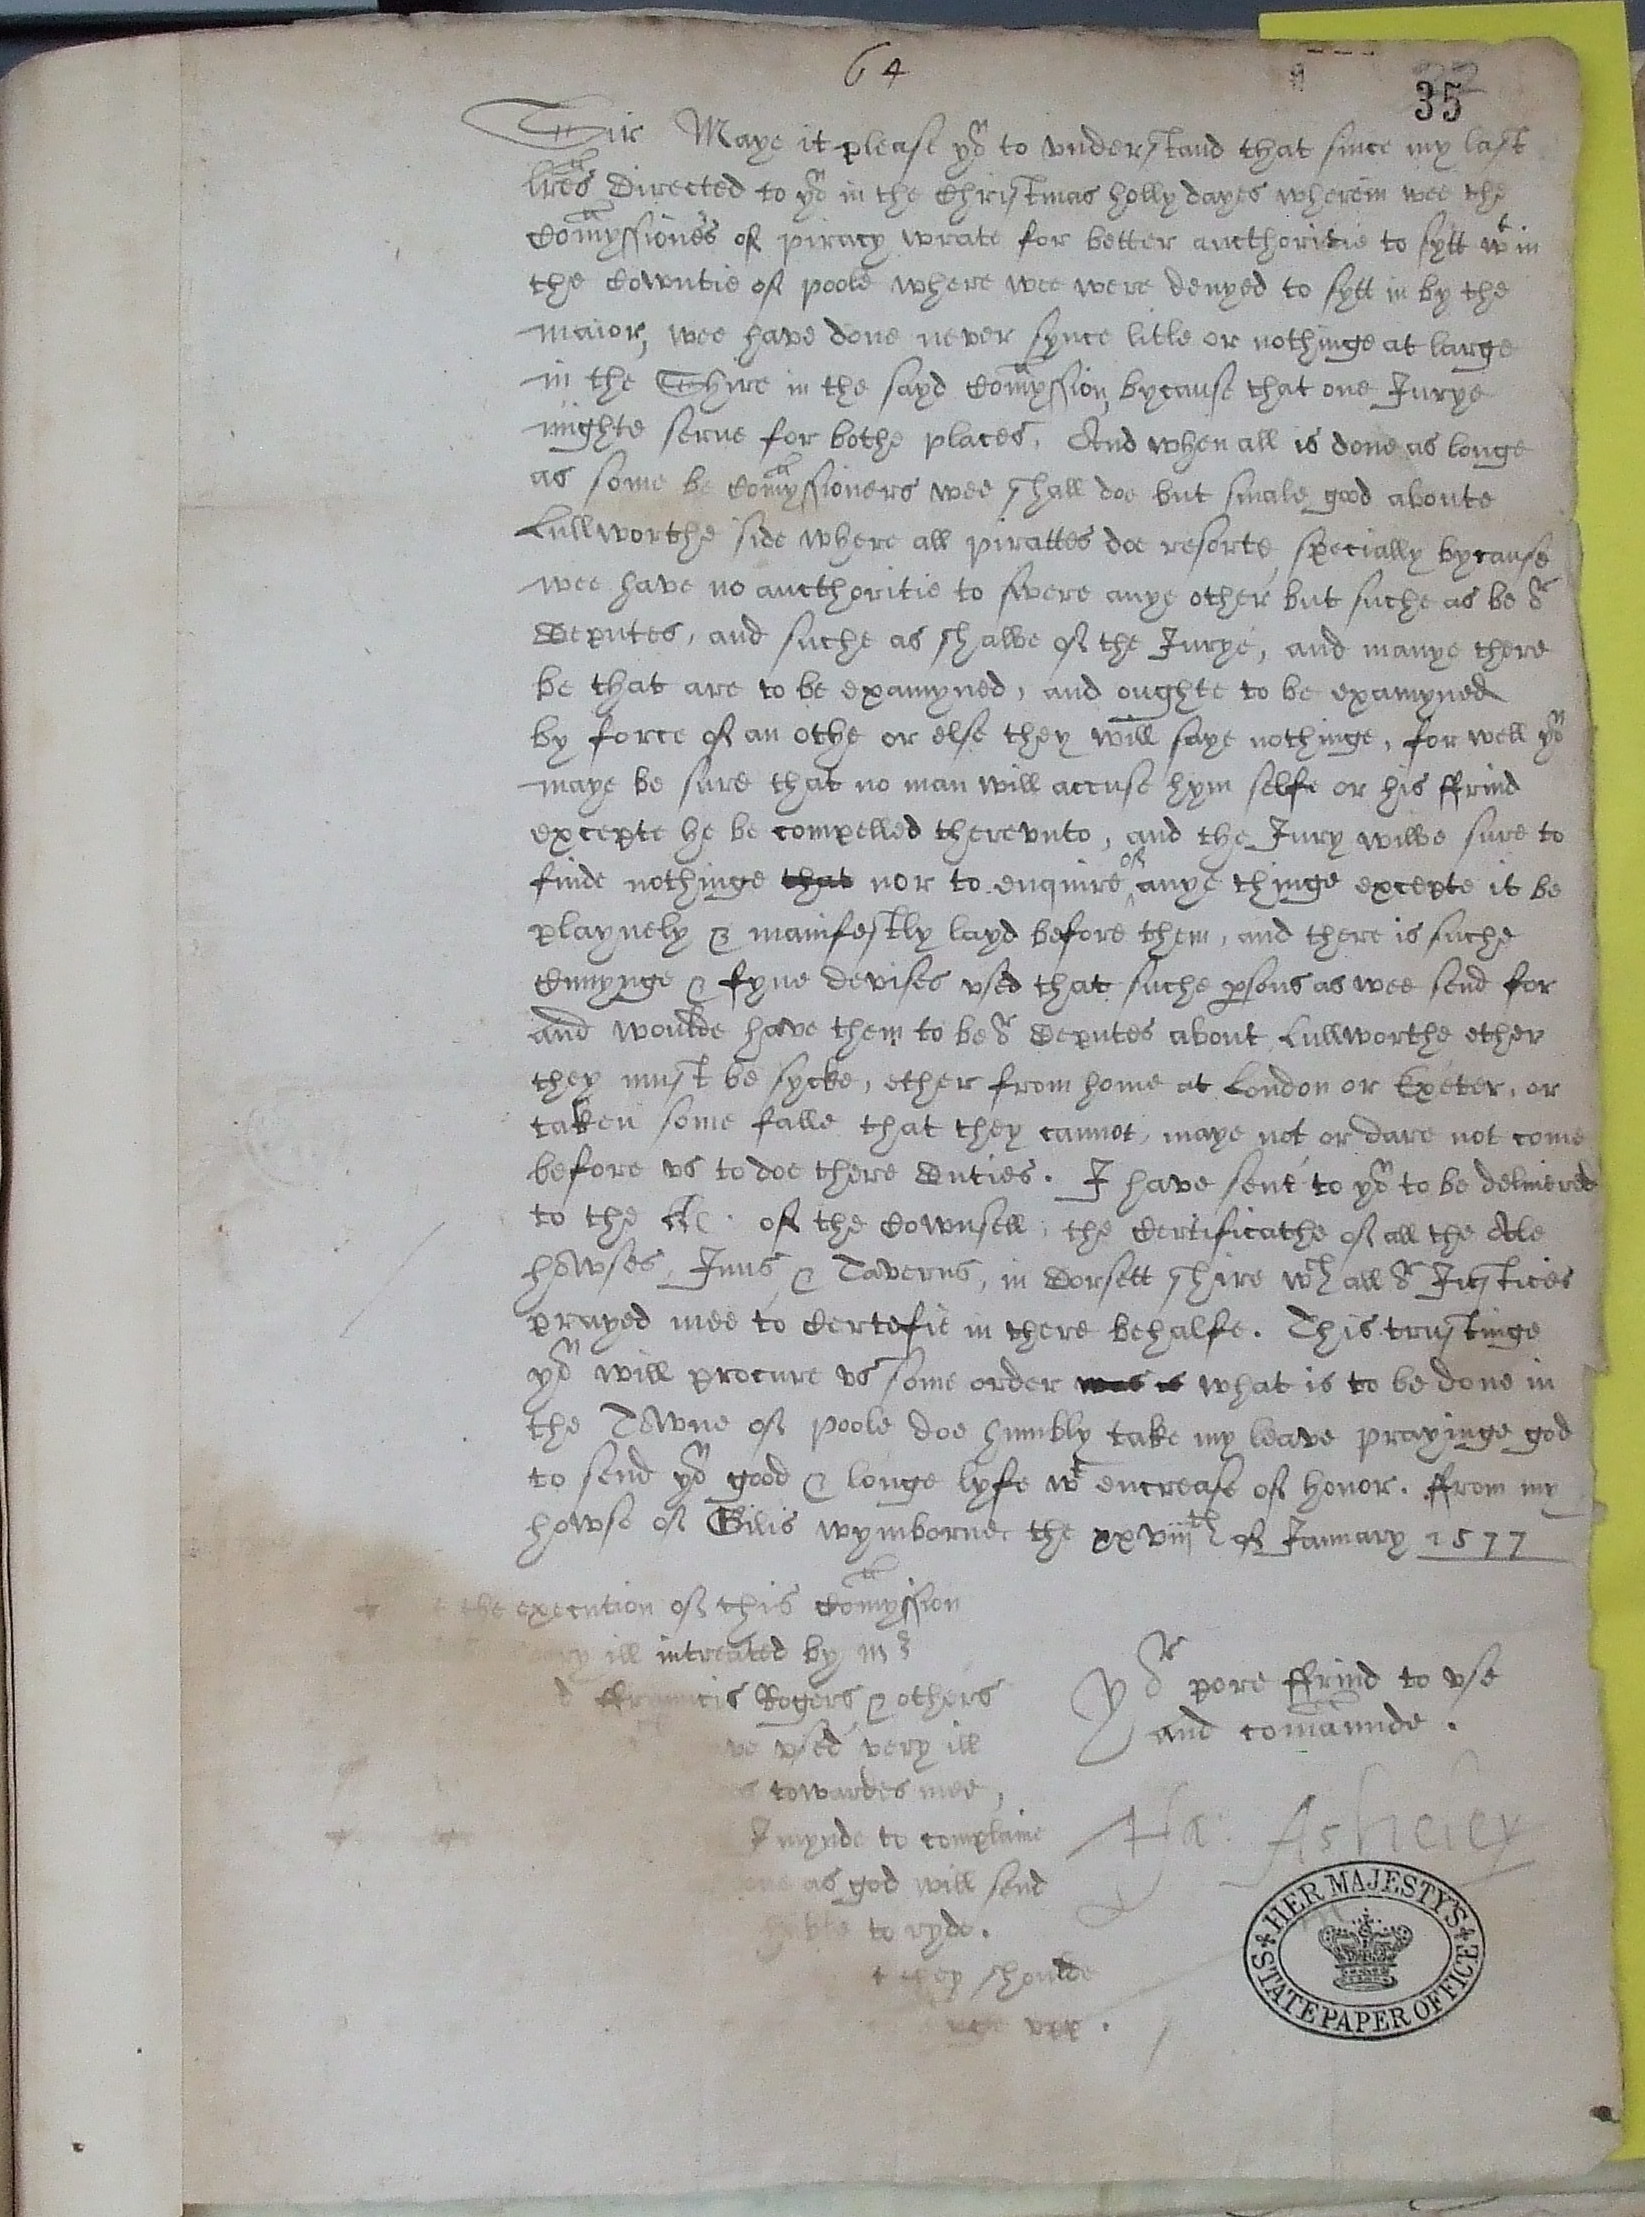 64
35
Sir Maye it please yow to vnderstand that since my last
lres directed to yow in the Christmas holly dayes wherein wee the
Comyssiones of piracy wrate for better aucthoritie to sytt wt in
the Cowntie of poole where wee were denyed to sytt in by the
maior, wee have done never synce litle or nothinge at large
in the Shire in the sayd Comyssion, bycause that one Jurye
mighte serue for bothe places. And when all is done as longe
as some be Comyssioners wee shall doe but smale good aboute
Lullworthe side where all pirattes doe resorte, specially bycause
wee have no aucthoritie to swere anye other but suche as be or
Deputes, and suche as shalbe of the Jurye, and manye there
be that are to be examyned, and oughte to be examyned
by force of an othe or else they will saye nothinge, for well yow
maye be sure that no man will accuse hym selfe or his ffrind
excepte he be compelled therevnto, and the Jury wilbe sure to
finde nothinge that nor to enquire of anye thinge excepte it be
playnely & manifestly layd before them, and there is suche
Cunnynge & fyne devises vsed that suche psons as wee send for
and woulde have them to be or Deputes about Lullworthe ether
they must be sycke, ether from home at London or Exeter, or
taken some falle that they cannot, maye not or dare not come
before vs to doe there Duties. I have sent to yow to be deliuered
to the of the Cownsell, the Certificathe of all the Ale
howses, Inns & Taverns, in Dorsett shire wch all or Justices
prayed mee to Certefie in there behalfe. This trustinge
yow will procure vs some order was is what is to be done in
the Towne of poole doe humbly take my leave prayinge god
to send yow good & longe lyfe wt encrease of honor. ffrom my
howse of Gilis wymborne the xxviijth of January 1577
the execution of this Comyssion
ill intreated by mr
ffrauncis Rogers & others
vsed very ill
towardes mee,
I mynde to complaine
as god will send
to ryde.
they shoulde
Yor pore ffrind to vse
and comaunde.
Ha: Asheley
HER MAJESTY'S
STATE PAPER OFFICE